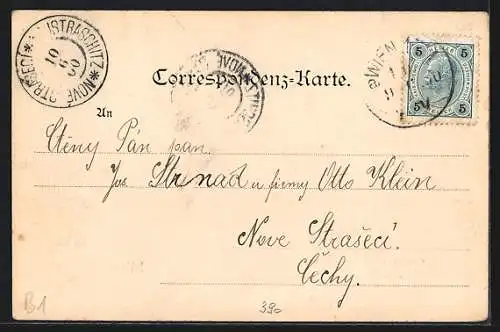 NEU STRASCHITZ * NOVÉ STRAŠECÍ *
10
6
00
Correspondenz-Karte.
WIEN
5 5
5 5
An
Ctěny Pán pan
Jos Strnad u firmy Otto Klein
Nove Strašecí.
Čechy.
B1
390